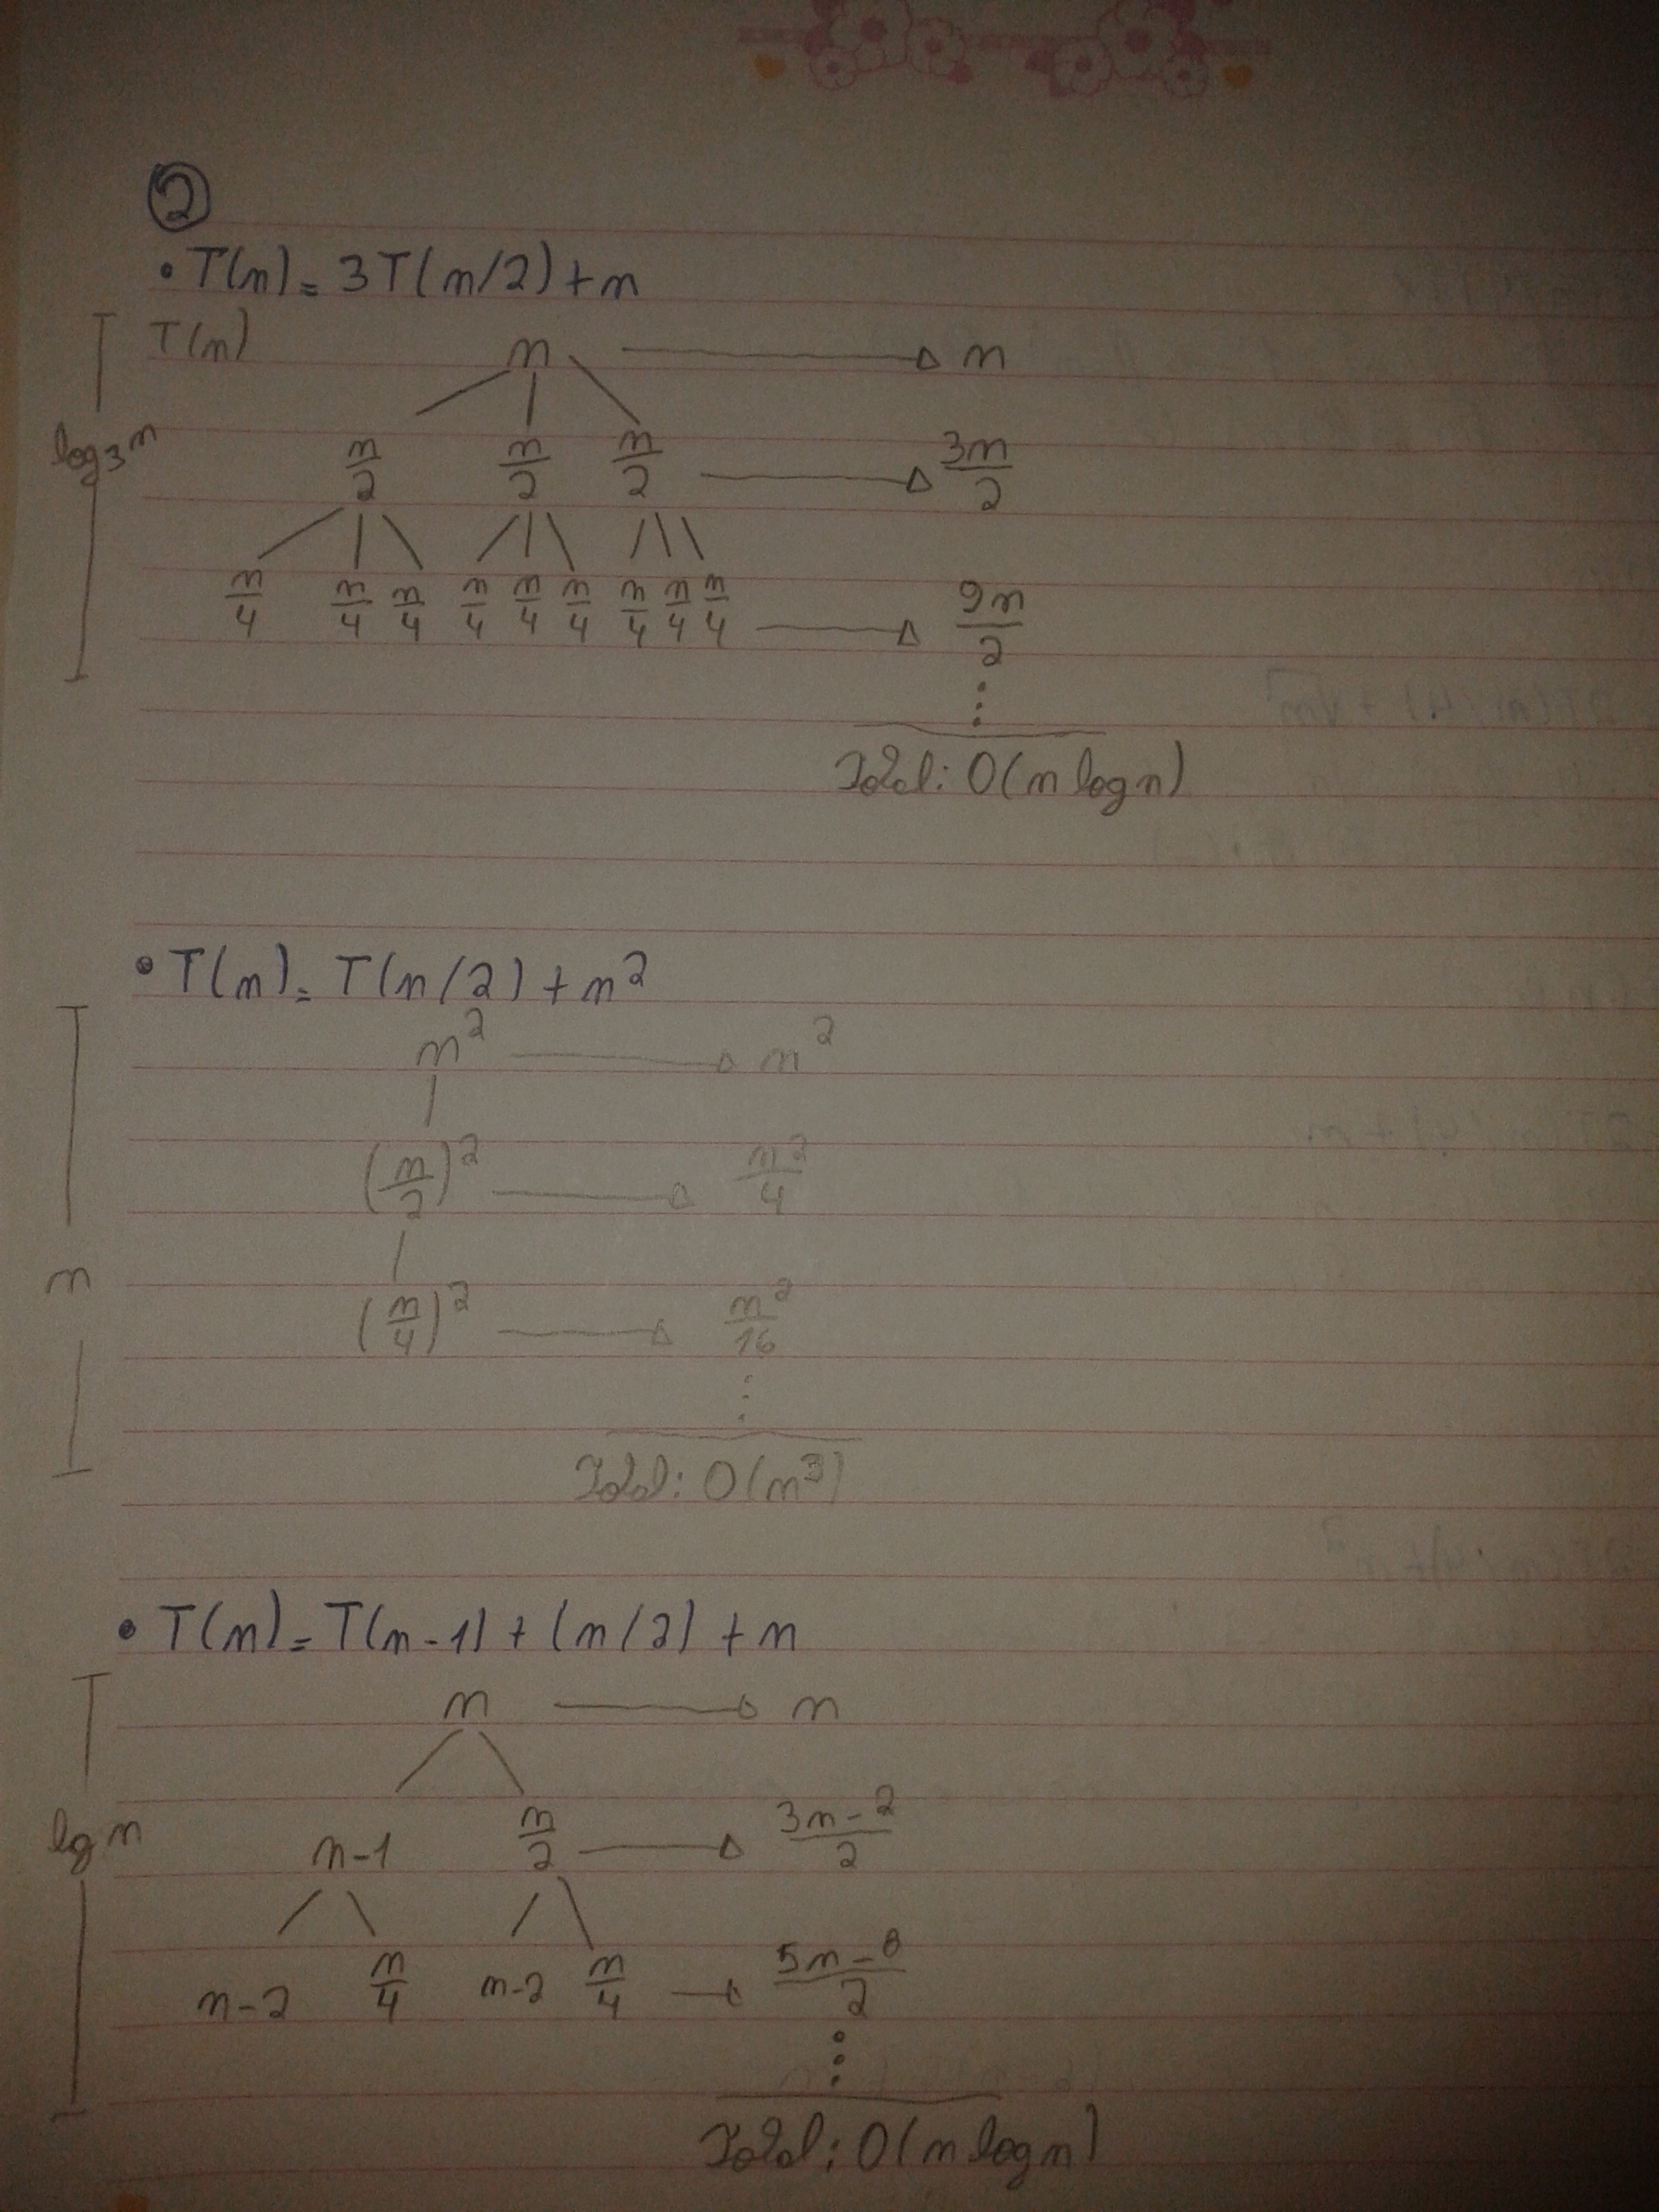 2
• T(n) = 3T(n/2) + n
T(n) n → n
log₃n
n/2 n/2 n/2 → 3n/2
n/4 n/4 n/4 n/4 n/4 n/4 n/4 n/4 n/4 → 9n/2
⋮
Total: O(n log n)
• T(n) = T(n/2) + n²
n² → n²
(n/2)² → n²/4
n
(n/4)² → n²/16
⋮
Total: O(n³)
• T(n) = T(n-1) + (n/2) + n
n → n
lg n
n-1 n/2 → 3n-2/2
n-2 n/4 n-2 n/4 → 5n-8/2
⋮
Total: O(n log n)